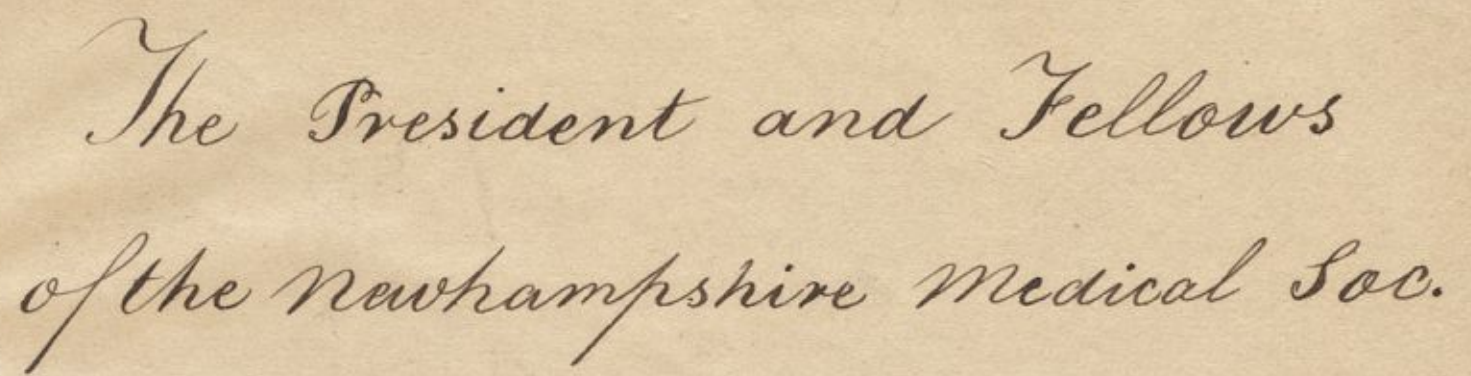 The President and Fellows
of the Newhampshire Medical Soc.